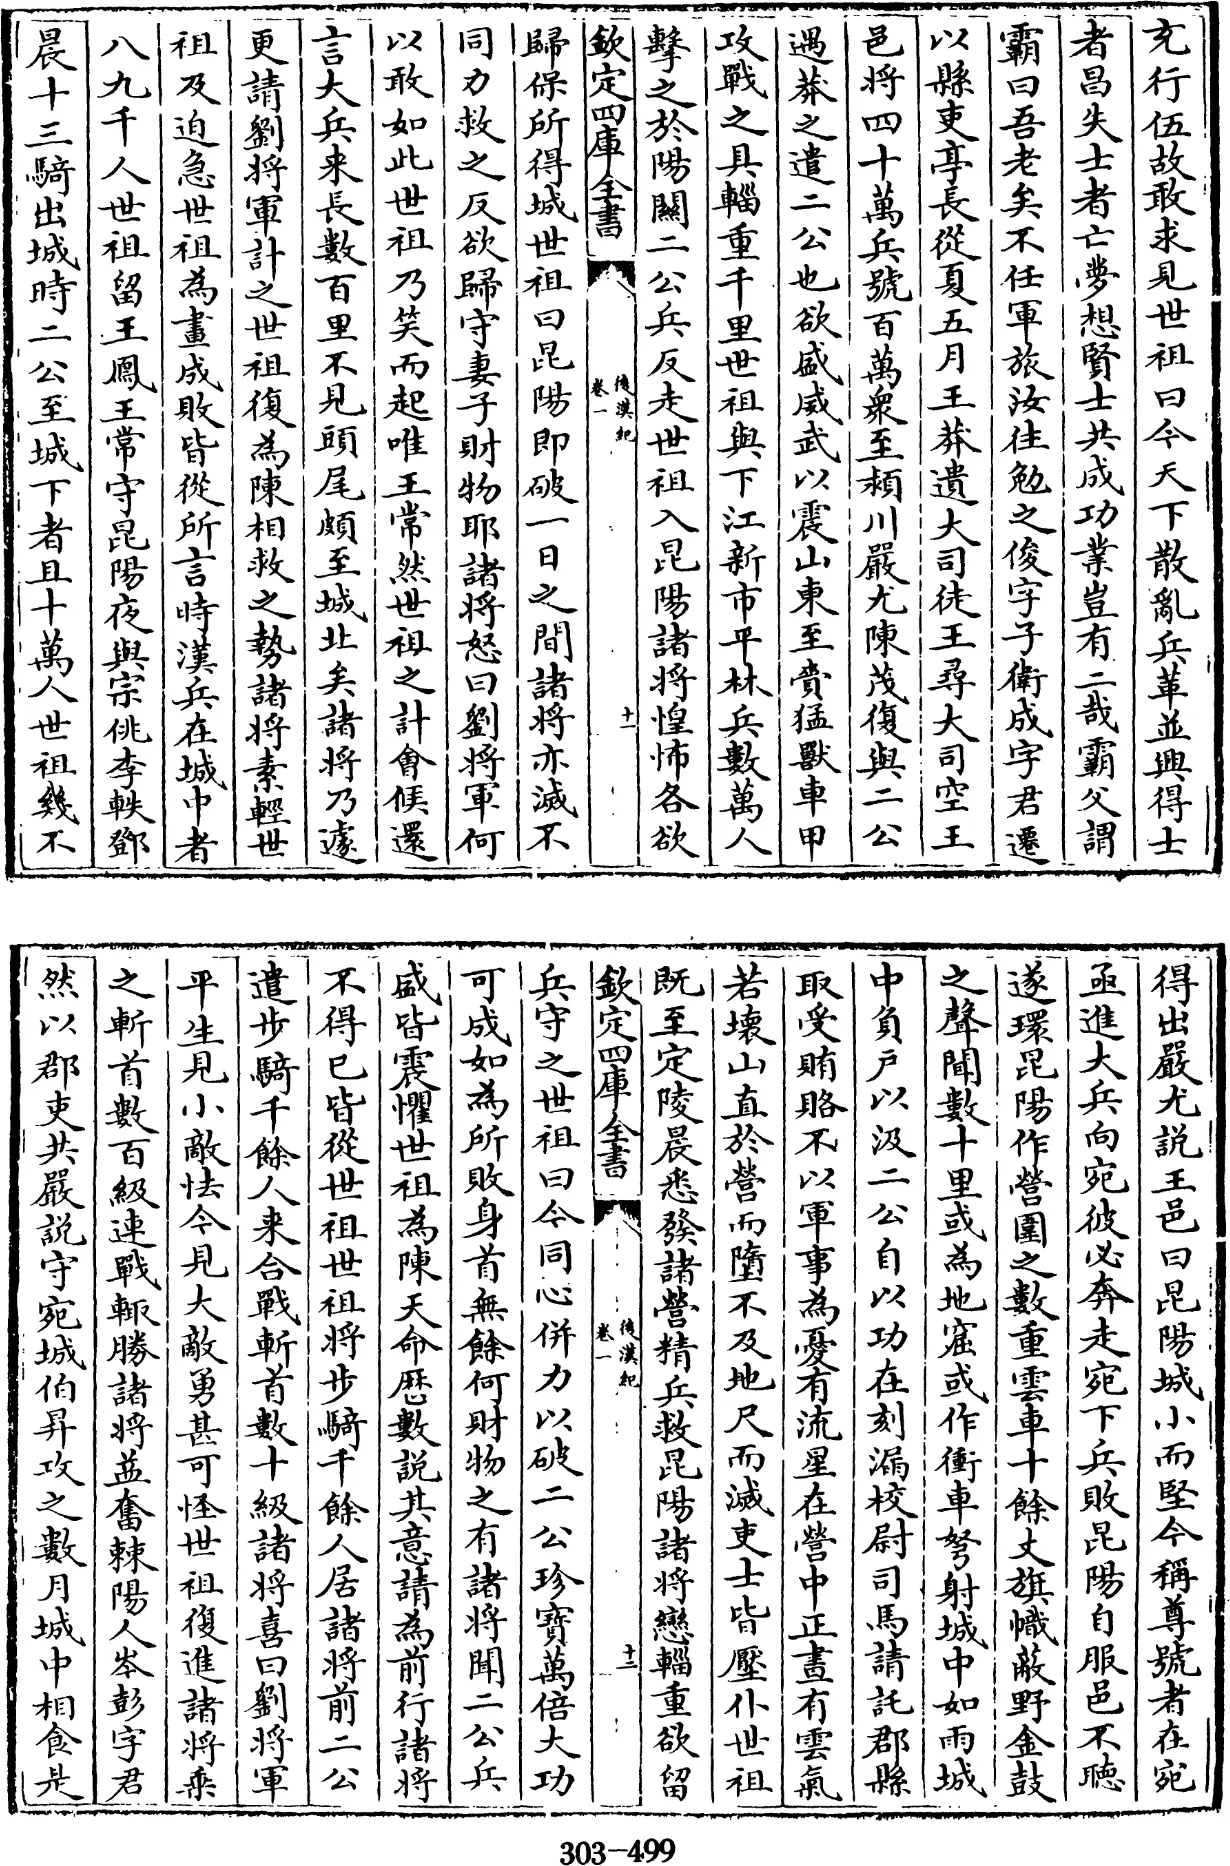 充行伍故敢求見世祖曰今天下散亂兵革並興得士
者昌失士者亡夢想賢士共成功業豈有二哉霸父謂
霸曰吾老矣不任軍旅汝往勉之俊字子衛成字君遷
以縣吏亭長從夏五月王莽遣大司徒王尋大司空王
邑將四十萬兵號百萬衆至潁川嚴尤陳茂復與二公
遇莽之遣二公也欲盛威武以震山東至賫猛獸車甲
攻戰之具輜重千里世祖與下江新市平林兵數萬人
擊之於陽關二公兵反走世祖入昆陽諸將惶怖各欲
欽定四庫全書
後漢紀
卷一
十一
歸保所得城世祖曰昆陽即破一日之間諸將亦滅不
同力救之反欲歸守妻子財物耶諸將怒曰劉將軍何
以敢如此世祖乃笑而起唯王常然世祖之計會候還
言大兵来長數百里不見頭尾頗至城北矣諸將乃遽
更請劉將軍計之世祖復為陳相救之勢諸將素輕世
祖及迫急世祖為畫成敗皆從所言時漢兵在城中者
八九千人世祖留王鳳王常守昆陽夜與宗佻李軼鄧
晨十三騎出城時二公至城下者且十萬人世祖幾不
得出嚴尤説王邑曰昆陽城小而堅今稱尊號者在宛
亟進大兵向宛彼必奔走宛下兵敗昆陽自服邑不聽
遂環昆陽作營圍之數重雲車十餘丈旗幟蔽野金鼓
之聲聞數十里或為地窟或作衝車弩射城中如雨城
中負户以汲二公自以功在刻漏校尉司馬請託郡縣
取受賄賂不以軍事為憂有流星在營中正晝有雲氣
若壞山直於營而墮不及地尺而滅吏士皆壓仆世祖
既至定陵晨悉發諸營精兵救昆陽諸將戀輜重欲留
欽定四庫全書
後漢紀
卷一
十二
兵守之世祖曰今同心併力以破二公珍寶萬倍大功
可成如為所敗身首無餘何財物之有諸將聞二公兵
盛皆震懼世祖為陳天命歴數説其意請為前行諸將
不得已皆從世祖世祖將步騎千餘人居諸將前二公
遣步騎千餘人来合戰斬首數十級諸將喜曰劉將軍
平生見小敵怯今見大敵勇甚可怪世祖復進諸將乘
之斬首數百級連戰輒勝諸將益奮棘陽人岑彭字君
然以郡吏共嚴説守宛城伯昇攻之數月城中相食是
303-499